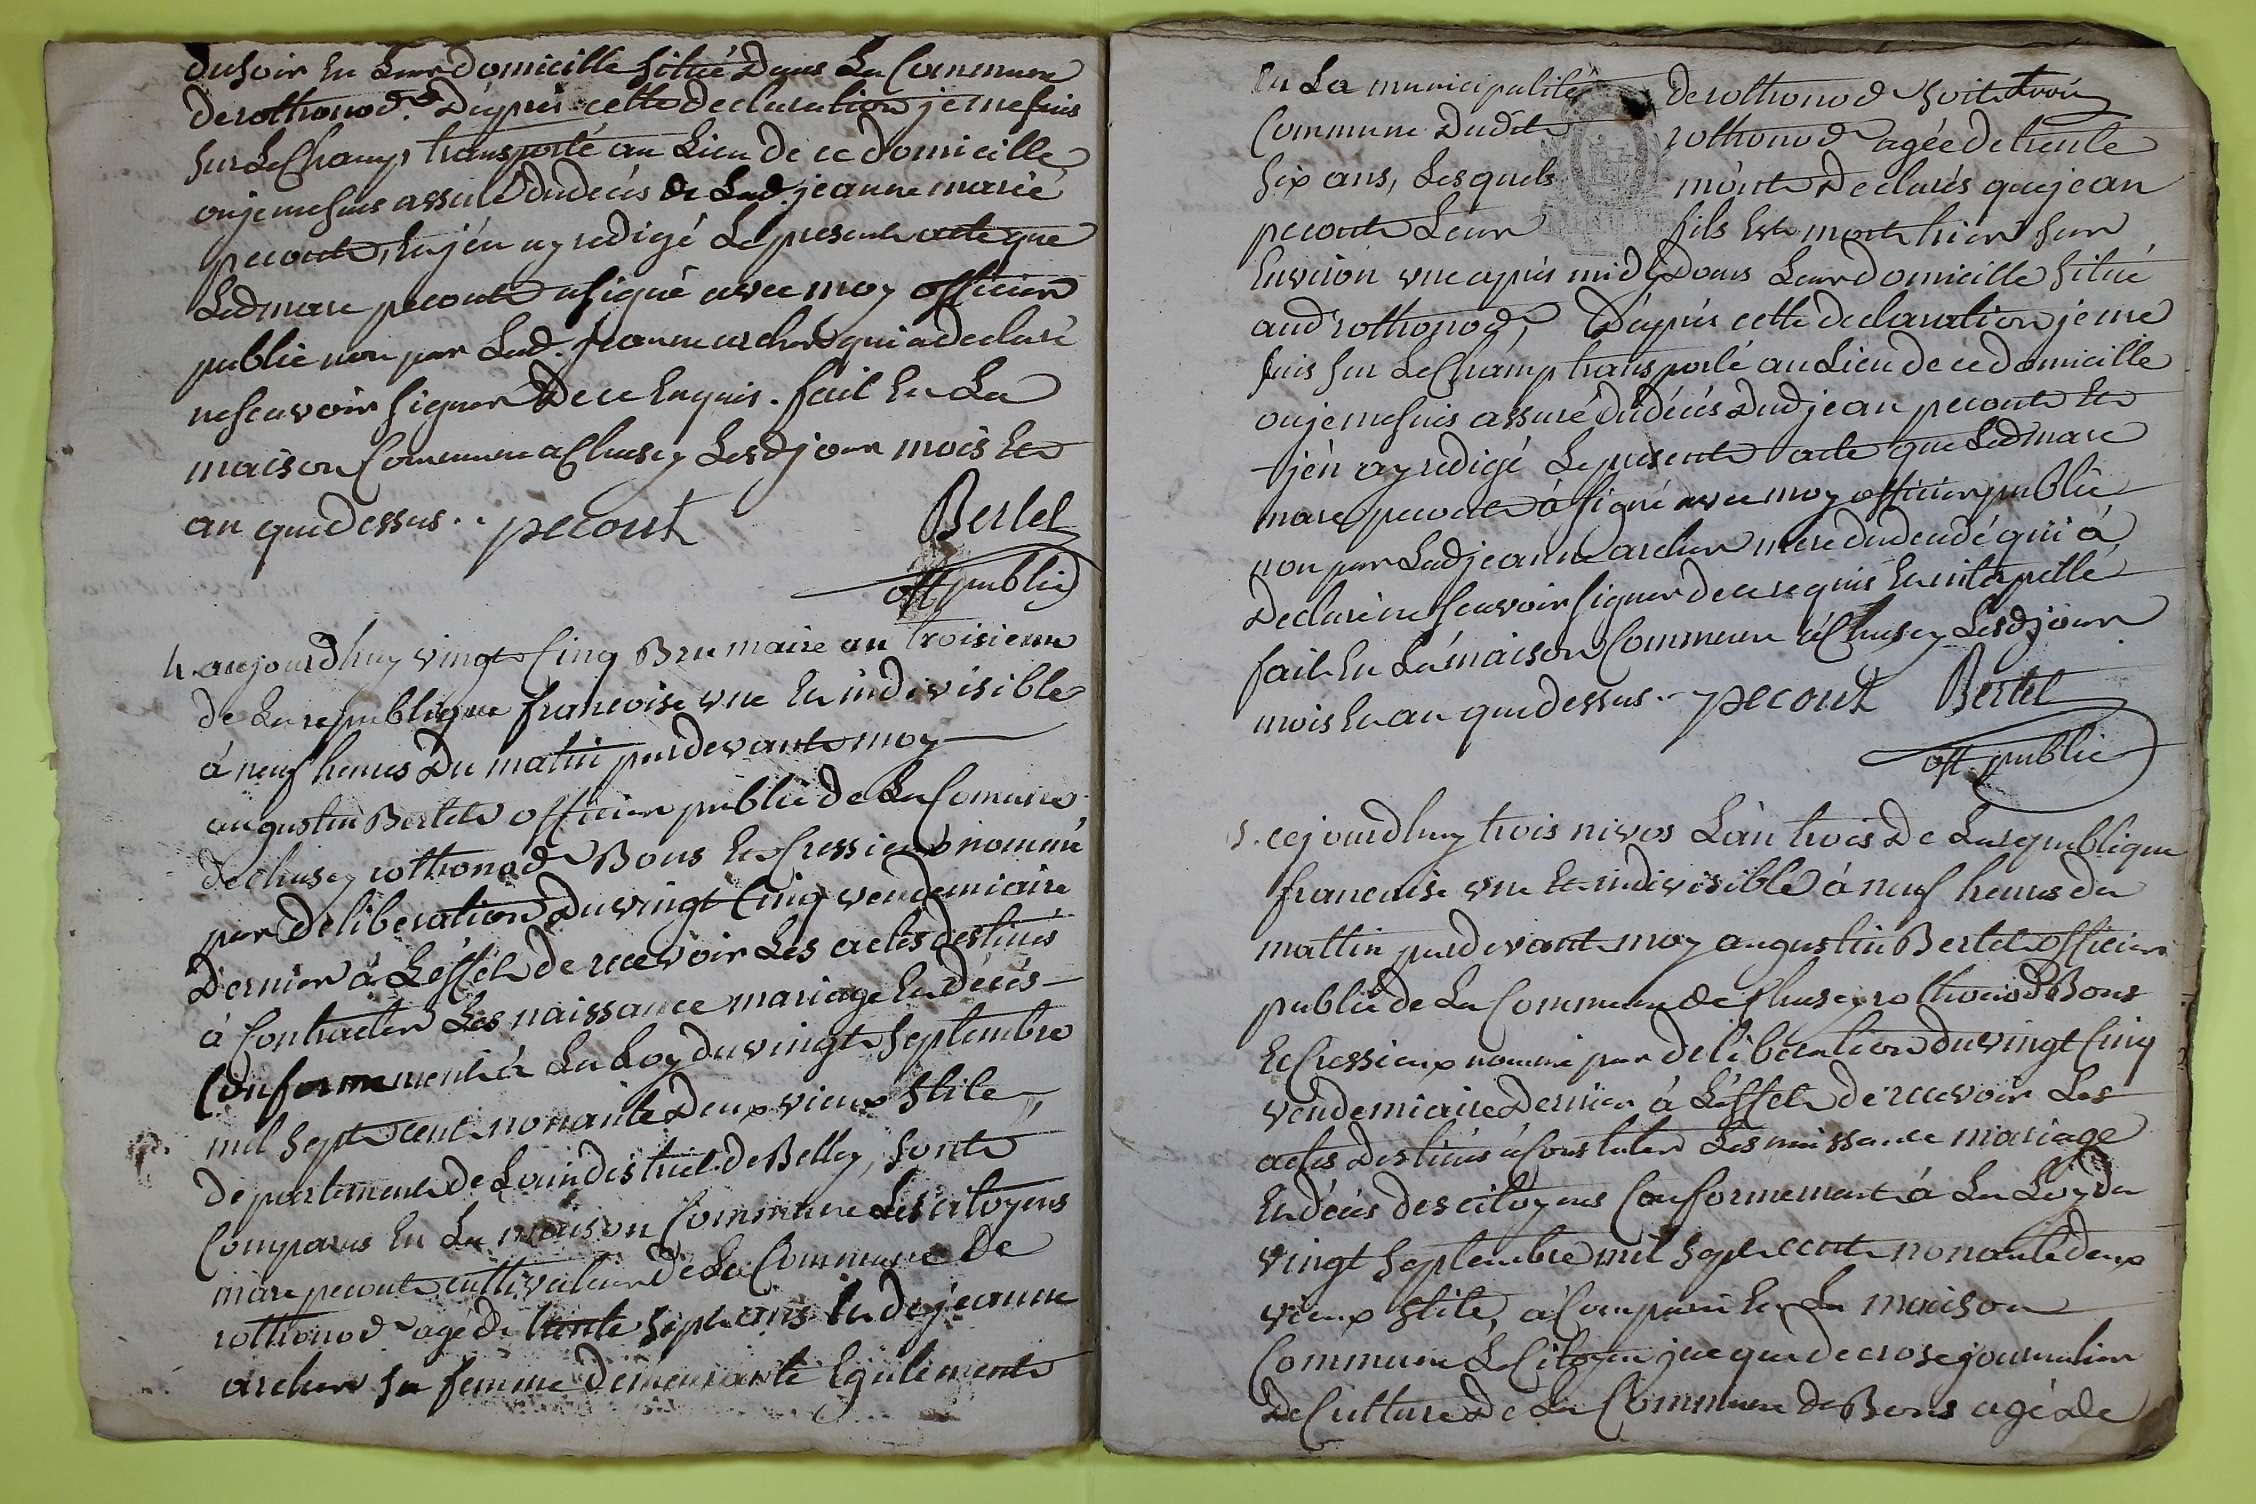 du soir en Leur domicille situé Dans La Commune
de rothonod. D'après cette declaration je me suis
sur Le Champ transporté au Lieu de ce domicille
ou je me suis assuré du decés de Lad. jeanne marie
pecoute, en j'en ay redigé Le presente acte que
Led marc pecoute a signé avec moy officier
public non par Lad. jeanne archer qui a declaré
ne scavoir signer De ce enquis. fait en La
maison Commune a Chusey Lesd jour mois et
an que dessus.. pecout Bertet
off public
4 aujourd'huy vingt Cinq Brumaire an troisieme
de La republique francoise une en indivisible
à neuf heures Du matin par devant moy
augustin Bertet officier public de La Comune
de Chusey rothonod Bons et Cressieux nommé
par deliberation Du vingt Cinq vendemiaire
Dernier à L'effet de recevoir Les actes destinés
à Contracter Les naissance mariage en décés
Conformement à La Loy du vingt septembre
mil sept cent nonante Deux vieux stile,
departement de L'ain district de Belley, sont
Comparus en La maison Commune Les citoyens
marc pecoute cultivateur de La Commune de
rothonod agé de trente sept ans en de jeanne
archer sa femme demeurante Egalement
en La municipalité de rothonod soit
Commune Dudit rothonod agée de trente
six ans, Lesquels m'ont Declarés que jean
pecoute Leur fils est mort hier sur
Environ une après midy dans Leur domicille situé
aud rothonod, D'après cette declaration je me
suis sur Le Champ transporté au Lieu de ce domicille
ou je me suis assuré du décés Dud jean pecoute et
j'en ay redigé Le presente acte que Led marc
marc pecoute à signé avec moy officier public
non par Lad jeanne archer mere du decedé qui à
Declaré ne scavoir signer de ce requis en interpellé
fait en La maison Commune à Chusey Lesd jour
mois en an que dessus.. pecout Bertet
off. public
5. cejourd'huy trois nivos L'an trois de La republique
francoise une et indivisible à neuf heures du
mattin par devant moy augustin Bertet officier
public de La Commune de Chusey rothonod Bons
et Cressieux nommé par deliberation du vingt Cinq
vendemiaire Dernier à L'effet de recevoir Les
actes destinés à Constater Les naissance mariage
en décés des citoyens Conformement à La Loy du
vingt septembre mil sept cent nonante deux
vieux stile, à Comparu en La maison
Commune Le Citoyen jacque decrose journalier
De Culture de La Commune de Bons agé de